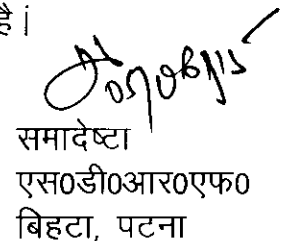 है।
05/06/15
समादेष्टा
एस0डी0आर0एफ0
बिहटा, पटना